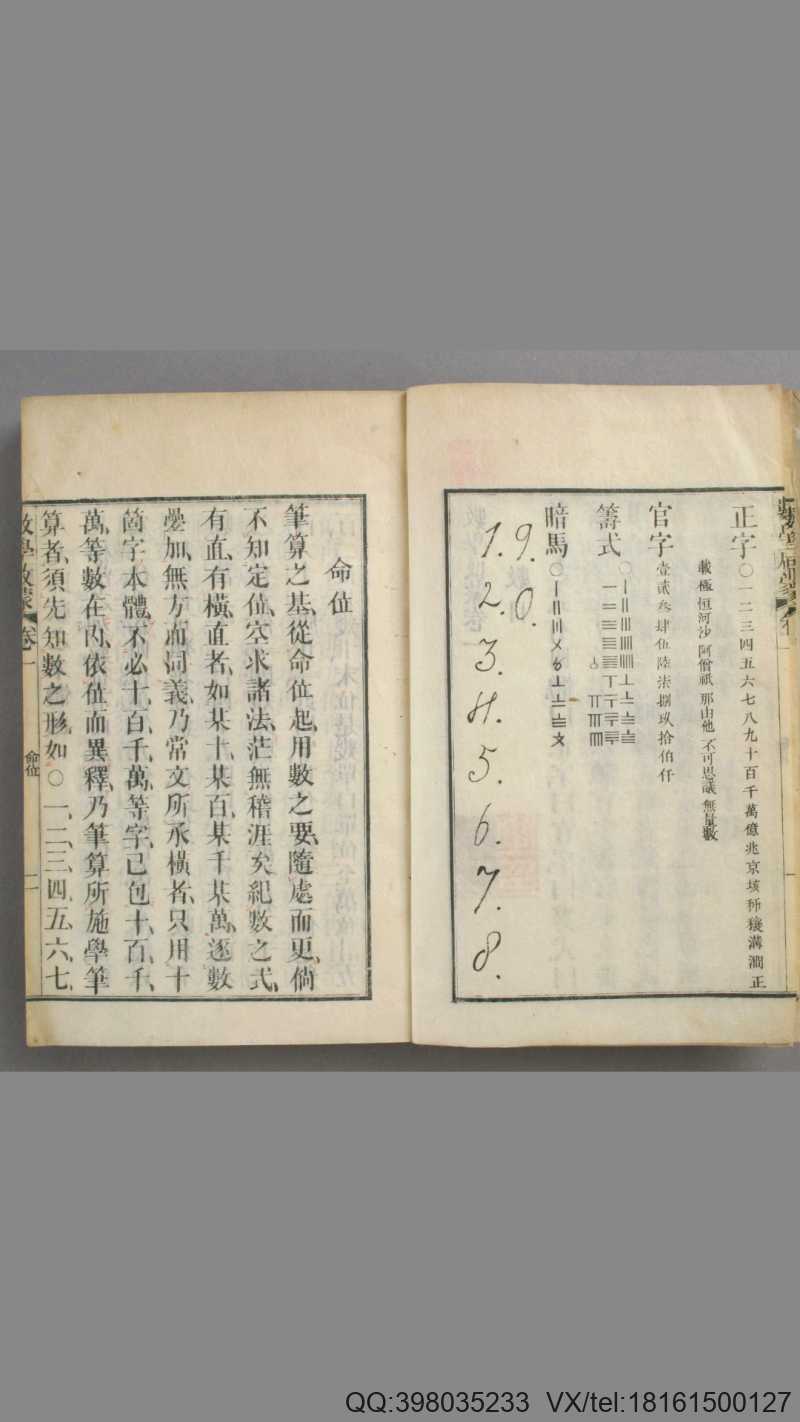 正字〇一二三四五六七八九十百千萬億兆京垓秭穰溝澗正
載極恒河沙阿僧祇那由他不可思議無量數
官字壹貳叁肆伍陸柒捌玖拾伯仟
籌式〇
暗馬〇〡〢〣〤〥〦〧〨〩
1. 2. 3. 4. 5. 6. 7. 8.
9. 0.
命位
筆算之基、從命位起、用數之要、隨處而更、倘
不知定位、空求諸法、茫無稽涯矣、紀數之式、
有直、有橫、直者、如某十、某百、某千、某萬、逐數
疊加、無方而同義、乃常文所承、橫者、只用十
箇字本體、不必十、百、千、萬、等字、已包十、百、千、
萬、等數在內、依位而異釋、乃筆算所施、學筆
算者、須先知數之形、如〇一、二、三、四、五、六、七、
數學啟蒙 卷一 命位 二
QQ:398035233 VX/tel:18161500127